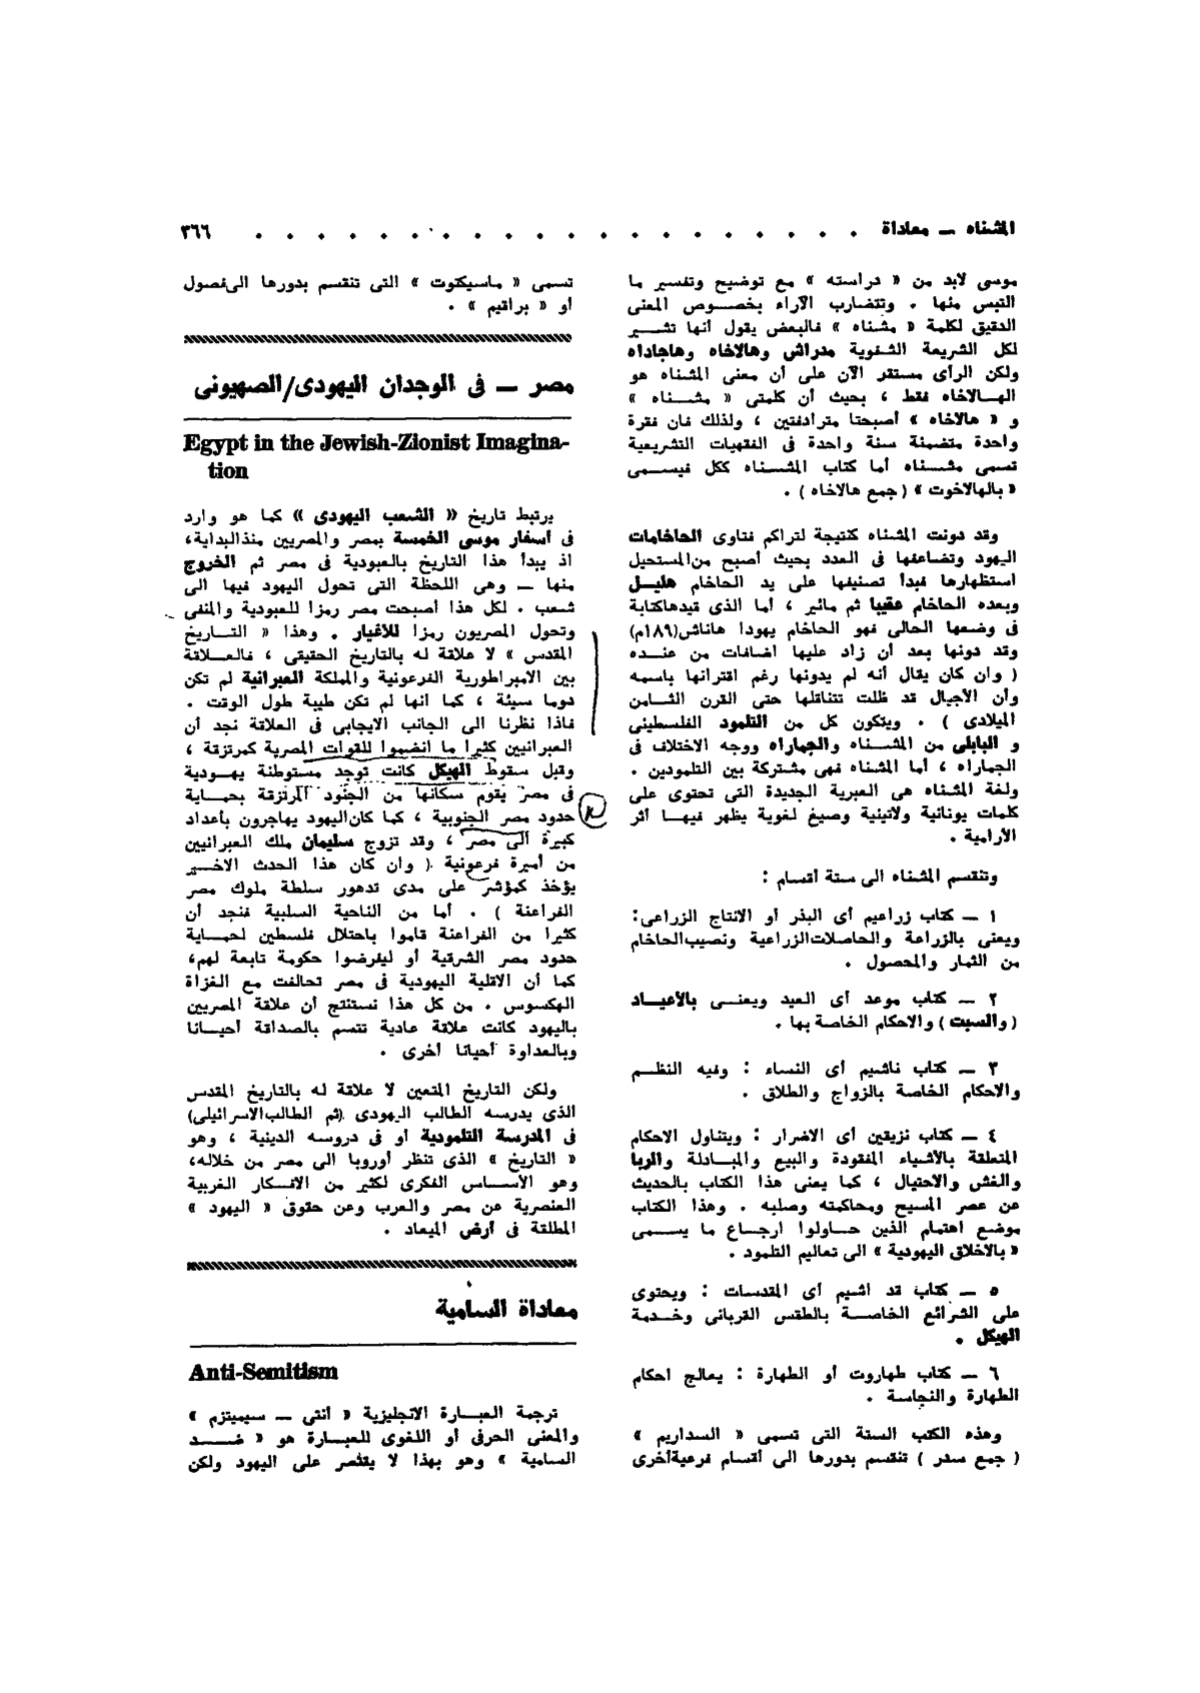 المشناه — معاداة . . . . . . . . . . . . . . . . . . . . ٣٦٦
موسى لابد من « دراسته » مع توضيح وتفسير ما
التبس منها . وتتضارب الآراء بخصوص المعنى
الدقيق لكلمة « مشناه » فالبعض يقول أنها تشير
لكل الشريعة الشفوية مدراش وهالاخاه وهاجاداه
ولكن الرأى مستقر الآن على أن معنى المشناه هو
الهالاخاه فقط ، بحيث أن كلمتى « مشناه »
و « هالاخاه » أصبحتا مترادفتين ، ولذلك فان فقرة
واحدة متضمنة سنة واحدة فى الفقهيات التشريعية
تسمى مشناه أما كتاب المشناه ككل فيسمى
« بالهالاخوت » ( جمع هالاخاه ) .
وقد دونت المشناه كنتيجة لتراكم فتاوى الحاخامات
اليهود وتضاعفها فى العدد بحيث أصبح من المستحيل
استظهارها فبدأ تصنيفها على يد الحاخام هليل
وبعده الحاخام عقيبا ثم مائير ، أما الذى قيدها كتابة
فى وضعها الحالى فهو الحاخام يهودا هاناش (١٨٩م)
وقد دونها بعد أن زاد عليها اضافات من عنده
( وان كان يقال أنه لم يدونها رغم اقترانها باسمه
وأن الأجيال قد ظلت تتناقلها حتى القرن الثامن
الميلادى ) . ويتكون كل من التلمود الفلسطينى
و البابلى من المشناه والجماراه ووجه الاختلاف فى
الجماراه ، أما المشناه فهى مشتركة بين التلمودين .
ولغة المشناه هى العبرية الجديدة التى تحتوى على
كلمات يونانية ولاتينية وصيغ لغوية يظهر فيها أثر
الآرامية .
وتنقسم المشناه الى ستة أقسام :
١ — كتاب زراعيم أى البذر أو الانتاج الزراعى :
ويعنى بالزراعة والحاصلات الزراعية ونصيب الحاخام
من الثمار والمحصول .
٢ — كتاب موعد أى العيد ويعنى بالأعياد
( والسبت ) والاحكام الخاصة بها .
٣ — كتاب ناشيم أى النساء : وفيه النظم
والاحكام الخاصة بالزواج والطلاق .
٤ — كتاب نزيقين أى الاضرار : ويتناول الاحكام
المتعلقة بالأشياء المفقودة والبيع والمبادلة والربا
والغش والاحتيال ، كما يعنى هذا الكتاب بالحديث
عن عصر المسيح ومحاكمته وصلبه . وهذا الكتاب
موضع اهتمام الذين حاولوا ارجاع ما يسمى
« بالاخلاق اليهودية » الى تعاليم التلمود .
٥ — كتاب قد اشيم أى المقدسات : ويحتوى
على الشرائع الخاصة بالطقس القربانى وخدمة
الهيكل .
٦ — كتاب طهاروت أو الطهارة : يعالج احكام
الطهارة والنجاسة .
وهذه الكتب الستة التى تسمى « السداريم »
( جمع سدر ) تنقسم بدورها الى أقسام فرعية أخرى
تسمى « ماسيكتوت » التى تنقسم بدورها الى فصول
أو « براقيم » .
مصر — فى الوجدان اليهودى/الصهيونى
Egypt in the Jewish-Zionist Imagina-
tion
يرتبط تاريخ « الشعب اليهودى » كما هو وارد
فى أسفار موسى الخمسة بمصر والمصريين منذ البداية،
اذ يبدأ هذا التاريخ بالعبودية فى مصر ثم الخروج
منها — وهى اللحظة التى تحول اليهود فيها الى
شعب . لكل هذا أصبحت مصر رمزا للعبودية والمنفى
وتحول المصريون رمزا للأغيار . وهذا « التاريخ
المقدس » لا علاقة له بالتاريخ الحقيقى ، فالعلاقة
بين الامبراطورية الفرعونية والمملكة العبرانية لم تكن
دوما سيئة ، كما انها لم تكن طيبة طول الوقت .
فاذا نظرنا الى الجانب الايجابى فى العلاقة نجد أن
العبرانيين كثيرا ما انضموا للقوات المصرية كمرتزقة ،
وقبل سقوط الهيكل كانت توجد مستوطنة يهودية
فى مصر يقوم سكانها من الجنود المرتزقة بحماية
حدود مصر الجنوبية ، كما كان اليهود يهاجرون بأعداد
كبيرة الى مصر ، وقد تزوج سليمان ملك العبرانيين
من أميرة فرعونية ( وان كان هذا الحدث الاخير
يؤخذ كمؤشر على مدى تدهور سلطة ملوك مصر
الفراعنة ) . أما من الناحية السلبية فنجد أن
كثيرا من الفراعنة قاموا باحتلال فلسطين لحماية
حدود مصر الشرقية أو ليفرضوا حكومة تابعة لهم،
كما أن الاقلية اليهودية فى مصر تحالفت مع الغزاة
الهكسوس . من كل هذا نستنتج أن علاقة المصريين
باليهود كانت علاقة عادية تتسم بالصداقة أحيانا
وبالعداوة أحيانا أخرى .
ولكن التاريخ المتعين لا علاقة له بالتاريخ المقدس
الذى يدرسه الطالب اليهودى (ثم الطالب الاسرائيلى)
فى المدرسة التلمودية أو فى دروسه الدينية ، وهو
« التاريخ » الذى تنظر أوروبا الى مصر من خلاله،
وهو الأساس الفكرى لكثير من الافكار الغربية
العنصرية عن مصر والعرب وعن حقوق « اليهود »
المطلقة فى أرض الميعاد .
معاداة السامية
Anti-Semitism
ترجمة العبارة الانجليزية « أنتى — سيميتزم »
والمعنى الحرفى أو اللغوى للعبارة هو « ضد
السامية » وهو بهذا لا يقتصر على اليهود ولكن